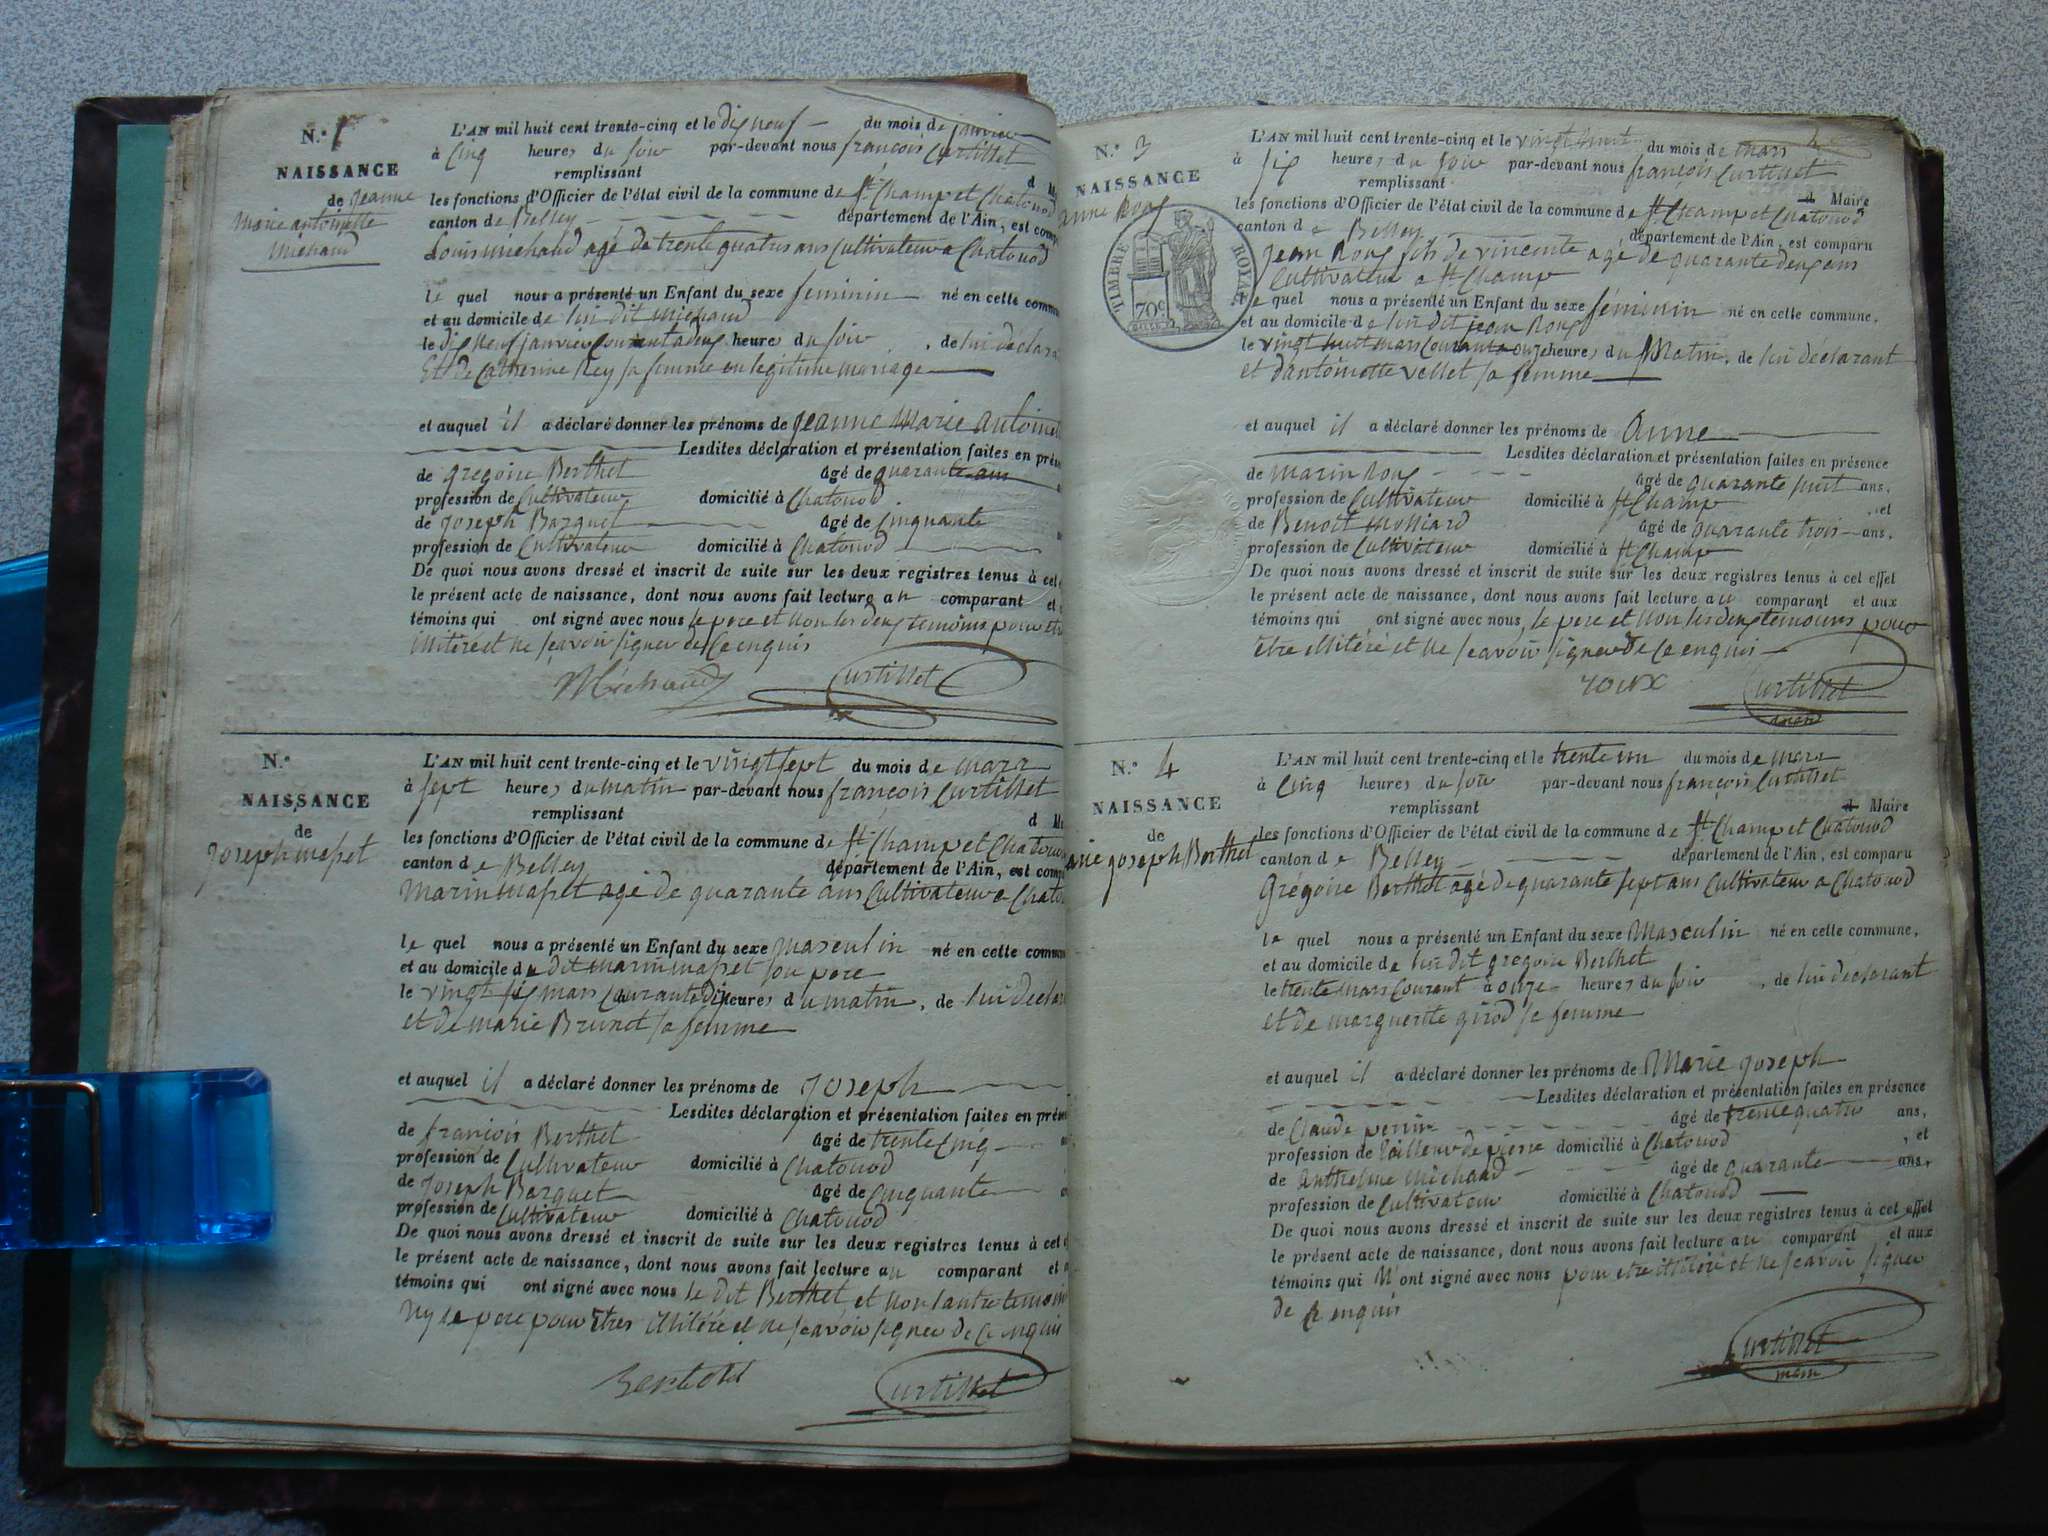 N.° 1
NAISSANCE
de Jeanne
Marie antoinette
Michaud
L'AN mil huit cent trente-cinq et le dix neuf du mois de janvier
à cinq heures du soir par-devant nous françois Curtillet
remplissant d M
les fonctions d'Officier de l'état civil de la commune de St Champ et Chatonod
canton de Belley département de l'Ain, est comp
Louis michaud agé de trente quatres ans Cultivateur a Chatonod
le quel nous a présenté un Enfant du sexe feminin né en cette commu
et au domicile de lui dit Michaud
le dix neuf janvier Courant a deux heures du soir, de lui declara
Et de Catherine Rey sa femme en legitime mariage
et auquel il a déclaré donner les prénoms de Jeanne Marie antoinet
Lesdites déclaration et présentation faites en prése
de gregoire Berthet âgé de quarante ans
profession de Cultivateur domicilié à Chatonod
de Joseph Barquet âgé de Cinquante
profession de Cultivateur domicilié à Chatonod
De quoi nous avons dressé et inscrit de suite sur les deux registres tenus à cet
le présent acte de naissance, dont nous avons fait lecture au comparant et
témoins qui ont signé avec nous le pere et non les deux temoins pour etre
illitéré et ne scavoir signer de Ce enquis
Michaud Curtillet
N.°
NAISSANCE
de
Joseph mapet
L'AN mil huit cent trente-cinq et le vingt sept du mois de mars
à sept heures du matin par-devant nous françois Curtillet
remplissant d M
les fonctions d'Officier de l'état civil de la commune de St Champ et Chatonod
canton de Belley département de l'Ain, est comp
Marin mapet agé de quarante ans Cultivateur a Chato
le quel nous a présenté un Enfant du sexe masculin né en cette commu
et au domicile du dit marin mapet son pere
le vingt six mars Courant a dix heures du matin, de lui declar
et de marie Brunet sa femme
et auquel il a déclaré donner les prénoms de Joseph
Lesdites déclaration et présentation faites en prése
de françois Berthet âgé de trente Cinq
profession de Cultivateur domicilié à Chatonod
de Joseph Barquet âgé de Cinquante
profession de Cultivateur domicilié à Chatonod
De quoi nous avons dressé et inscrit de suite sur les deux registres tenus à cet
le présent acte de naissance, dont nous avons fait lecture au comparant et
témoins qui ont signé avec nous le dit Berthet et non l'autre temoin
ny le pere pour Etres illitéré et ne scavoir signer de Ce enquis
Berthet Curtillet
N.° 3
NAISSANCE
anne Roux
TIMBRE ROYAL
70c
L'AN mil huit cent trente-cinq et le vingt huit du mois de mars
à six heures du soir par-devant nous françois Curtillet
remplissant d Maire
les fonctions d'Officier de l'état civil de la commune de St Champ et Chatonod
canton de Belley département de l'Ain, est comparu
Jean Roux fils de vincente agé de quarante deux ans
Cultivateur a St Champ
le quel nous a présenté un Enfant du sexe féminin né en cette commune,
et au domicile de lui dit jean Roux
le vingt huit mars Courant a onze heures du Matin, de lui déclarant
et d'antoinette vellet sa femme
et auquel il a déclaré donner les prénoms de Anne
Lesdites déclaration et présentation faites en présence
de marin Roux âgé de quarante huit ans,
profession de Cultivateur domicilié à St Champ, et
de Benoit Molliard âgé de quarante trois ans,
profession de Cultivateur domicilié à St Champ
De quoi nous avons dressé et inscrit de suite sur les deux registres tenus à cet effet
le présent acte de naissance, dont nous avons fait lecture au comparant et aux
témoins qui ont signé avec nous, le pere et non les deux temoins pour
être illitéré et ne scavoir signer de Ce enquis
roux Curtillet
N.° 4
NAISSANCE
de
arie joseph Berthet
L'AN mil huit cent trente-cinq et le trente un du mois de mars
à Cinq heures du soir par-devant nous françois Curtillet
remplissant d Maire
les fonctions d'Officier de l'état civil de la commune de St Champ et Chatonod
canton de Belley département de l'Ain, est comparu
Grégoire Berthet agé de quarante sept ans Cultivateur a Chatonod
le quel nous a présenté un Enfant du sexe Masculin né en cette commune,
et au domicile de lui dit gregoire Berthet
le trente mars Courant à onze heures du soir, de lui déclarant
et de marguerite girod sa femme
et auquel il a déclaré donner les prénoms de Marie joseph
Lesdites déclaration et présentation faites en présence
de Claude perrin âgé de trente quatre ans,
profession de tailleur de pierre domicilié à Chatonod, et
de Anthelme Michaud âgé de quarante ans,
profession de Cultivateur domicilié à Chatonod
De quoi nous avons dressé et inscrit de suite sur les deux registres tenus à cet effet
le présent acte de naissance, dont nous avons fait lecture au comparant et aux
témoins qui N'ont signé avec nous pour etre illitéré et ne scavoir signer
de Ce enquis
Curtillet